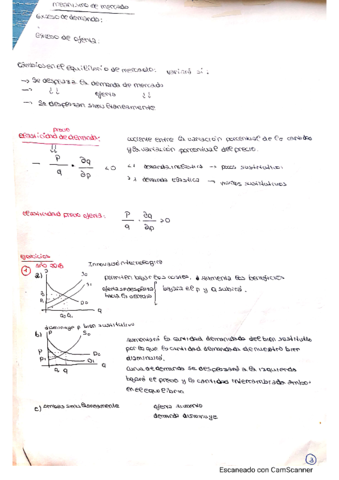 mecanismo de mercado
Exceso de demanda:
Exceso de oferta:
Cambios en el equilibrio de mercado: variará si:
→ Se desplaza la demanda de mercado
→ ↓↓ oferta ↓↓
→ Se desplazan simultáneamente
precio
elasticidad de demanda: cociente entre la variación porcentual de la cantidad
y la variación porcentual del precio.
- p/q · ∂q/∂p < 0
<1 demanda inelástica → pocos sustitutivos
>1 demanda elástica → muchos sustitutivos
elasticidad precio oferta: p/q · ∂q/∂p > 0
ejercicios
① año 2015
Innovación tecnológica
a) permiten bajar los costes, aumenta los beneficios
oferta se desplaza hacia la derecha
bajará el p y q subirá.
S0
S1
D0
Q
disminuye p bien sustitutivo
b) aumentará la cantidad demandada del bien sustitutivo
por lo que la cantidad demandada de nuestro bien
disminuirá.
Curva de demanda se desplazará a la izquierda
bajará el precio y la cantidad intercambiada ambos
en el equilibrio
P
P1
S0
D0
D1
Q
c) ambas simultáneamente oferta aumenta
demanda disminuye
3
Escaneado con CamScanner